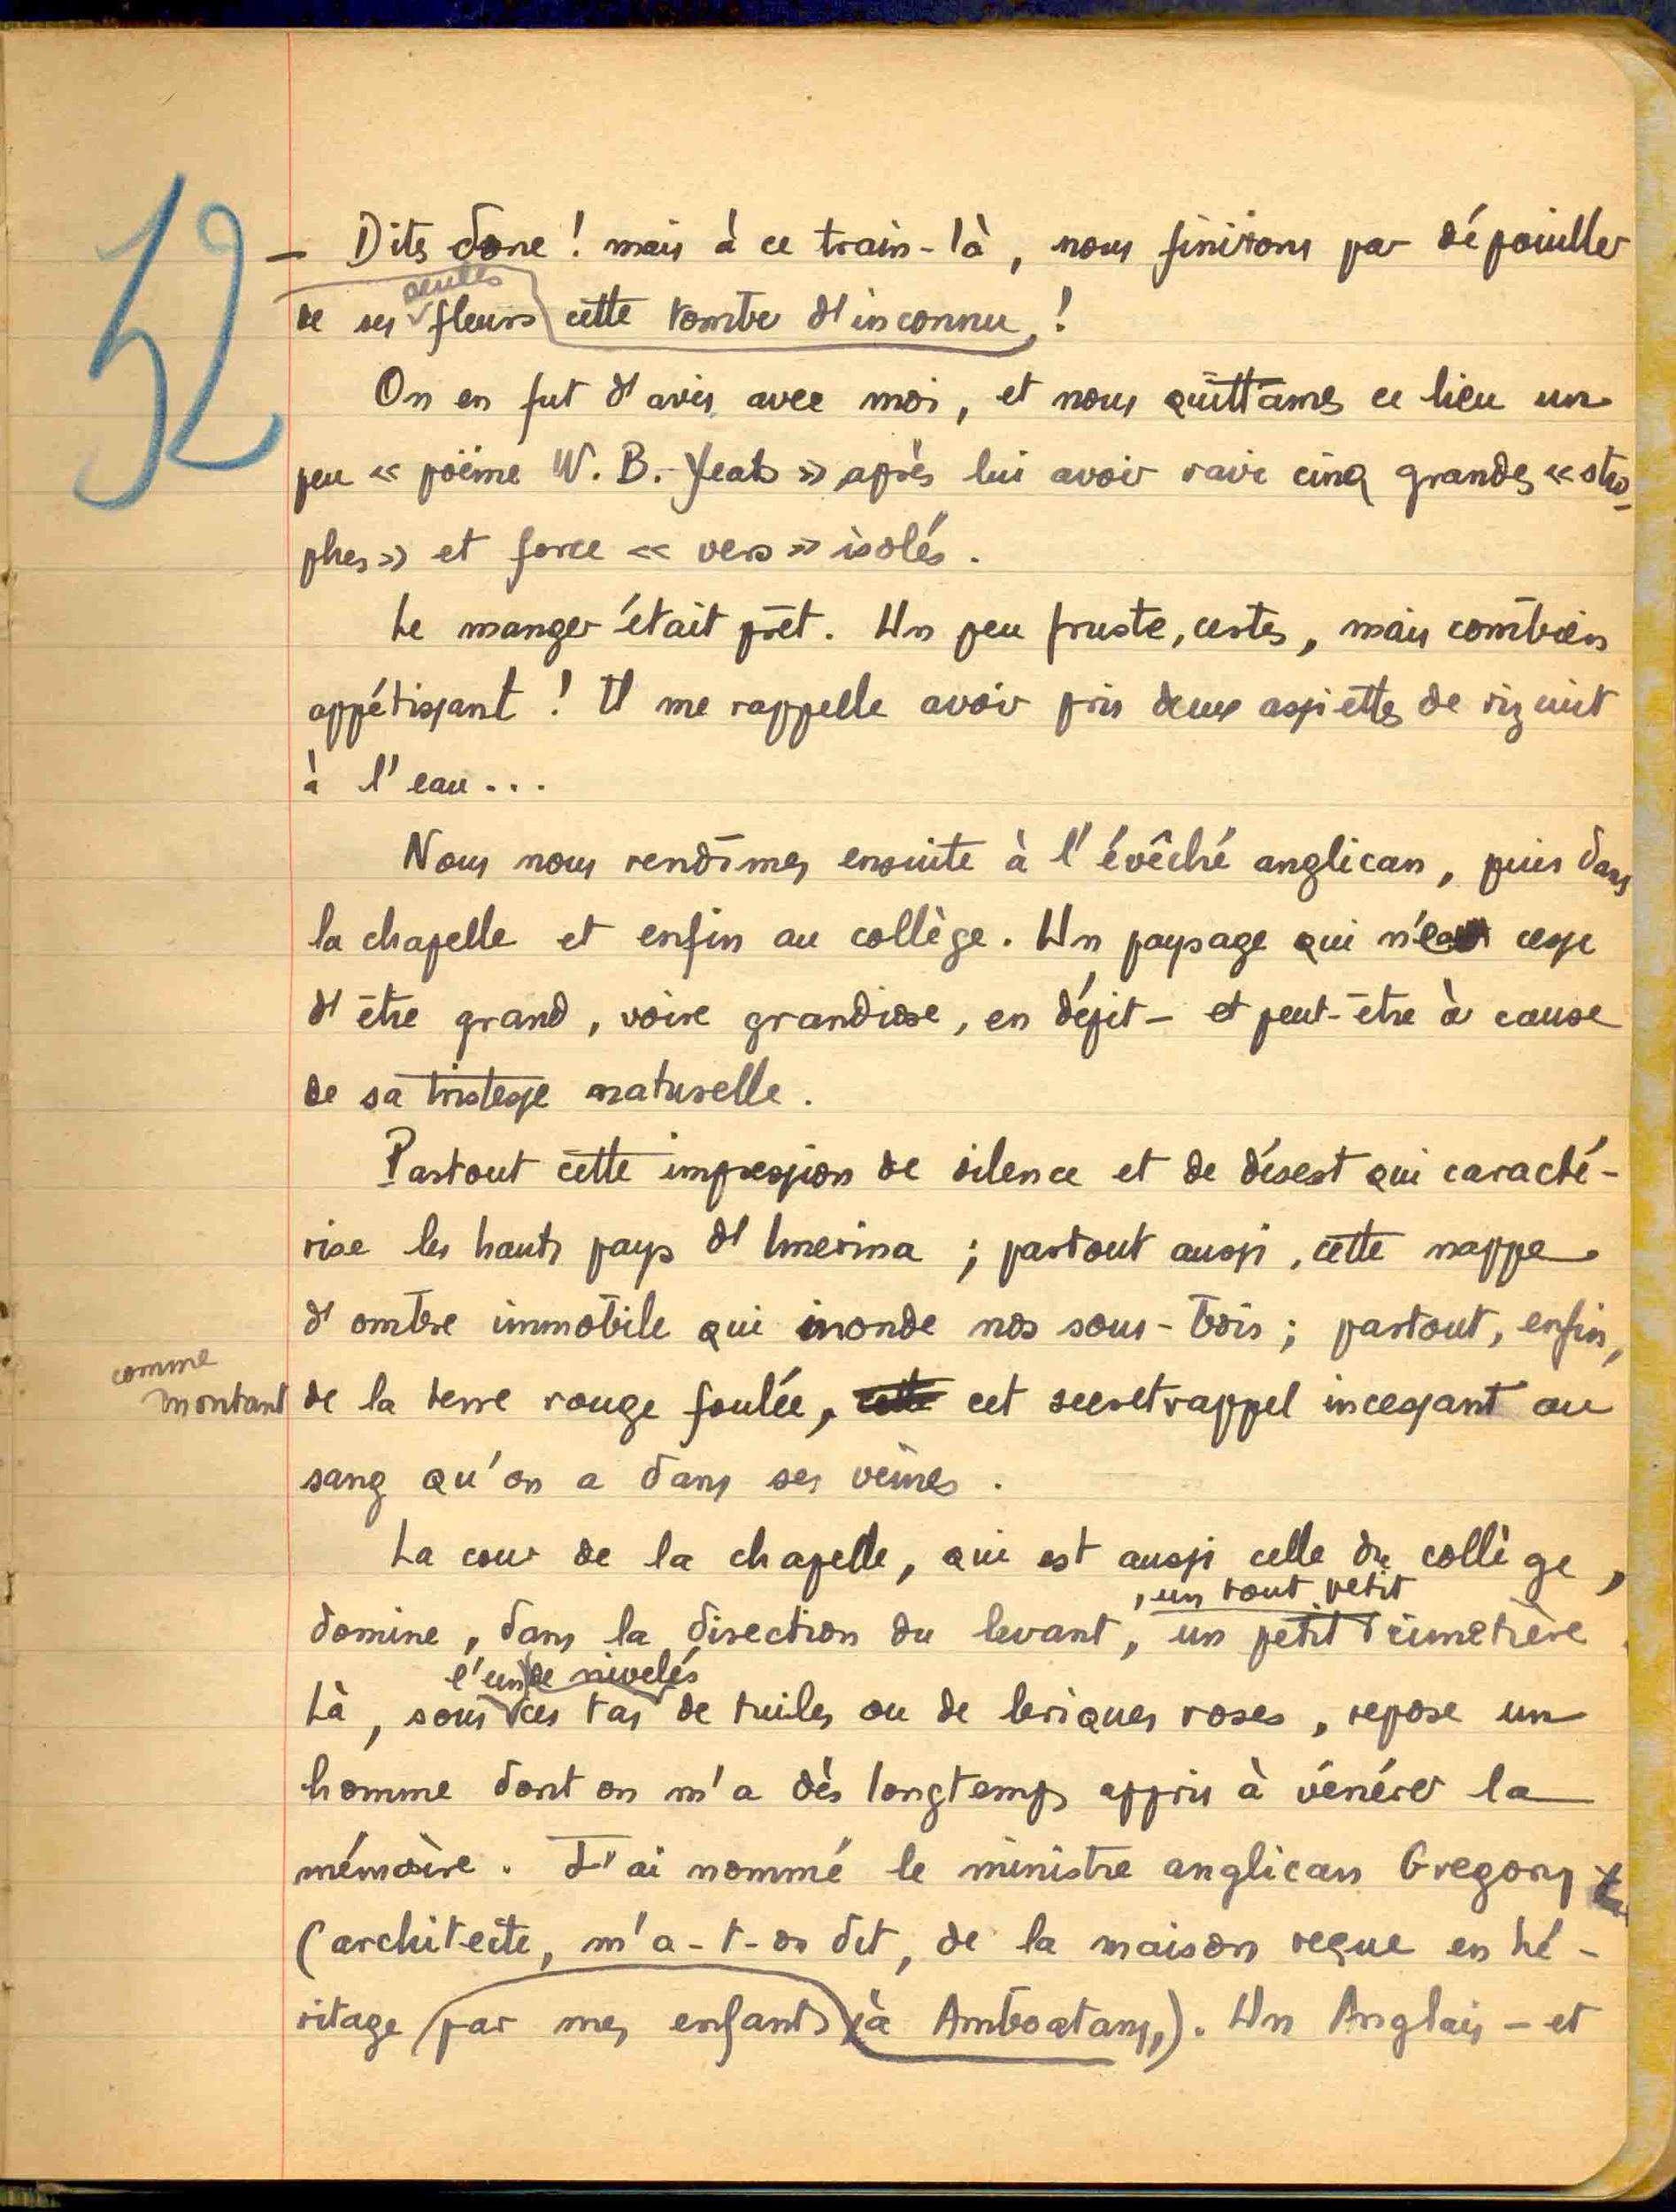 52
— Dites donc ! mais à ce train-là, nous finirons par dépouiller
seules
de ses fleurs cette tombe d'inconnu !
On en fut d'avis avec moi, et nous quittâmes ce lieu un
peu « poëme W. B. Yeats » après lui avoir ravi cinq grandes « stro-
phes » et force « vers » isolés.
Le manger était prêt. Un peu fruste, certes, mais combien
appétissant ! Il me rappelle avoir pris deux assiettes de riz cuit
à l'eau...
Nous nous rendîmes ensuite à l'évêché anglican, puis dans
la chapelle et enfin au collège. Un paysage qui n'e cesse
d'être grand, voire grandiose, en dépit — et peut-être à cause
de sa tristesse naturelle.
Partout cette impression de silence et de désert qui caracté-
rise les hauts pays d'Imerina ; partout aussi, cette nappe
d'ombre immobile qui inonde nos sous-bois ; partout, enfin,
comme
montant de la terre rouge foulée, cette cet secret rappel incessant au
sang qu'on a dans ses veines.
La cour de la chapelle, qui est aussi celle du collège,
, un tout petit
domine, dans la direction du levant, un petit cimetière.
l'un de nivelés
Là, sous ces tas de tuiles ou de briques roses, repose un
homme dont on m'a dès longtemps appris à vénérer la
mémoire. J'ai nommé le ministre anglican Gregory
(architecte, m'a-t-on dit, de la maison reçue en hé-
ritage par mes enfants à Amboatany,). Un Anglais — et